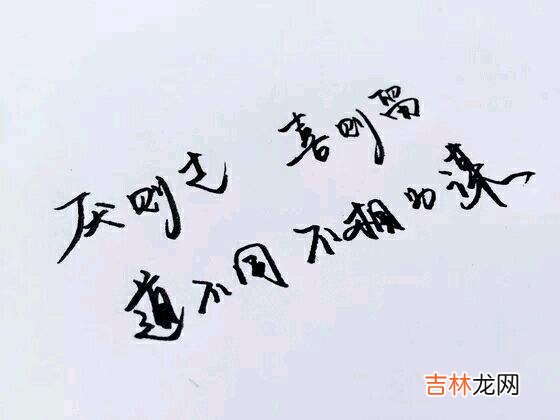 厌则走 喜则留
道不同不相为谋
吉林龙网